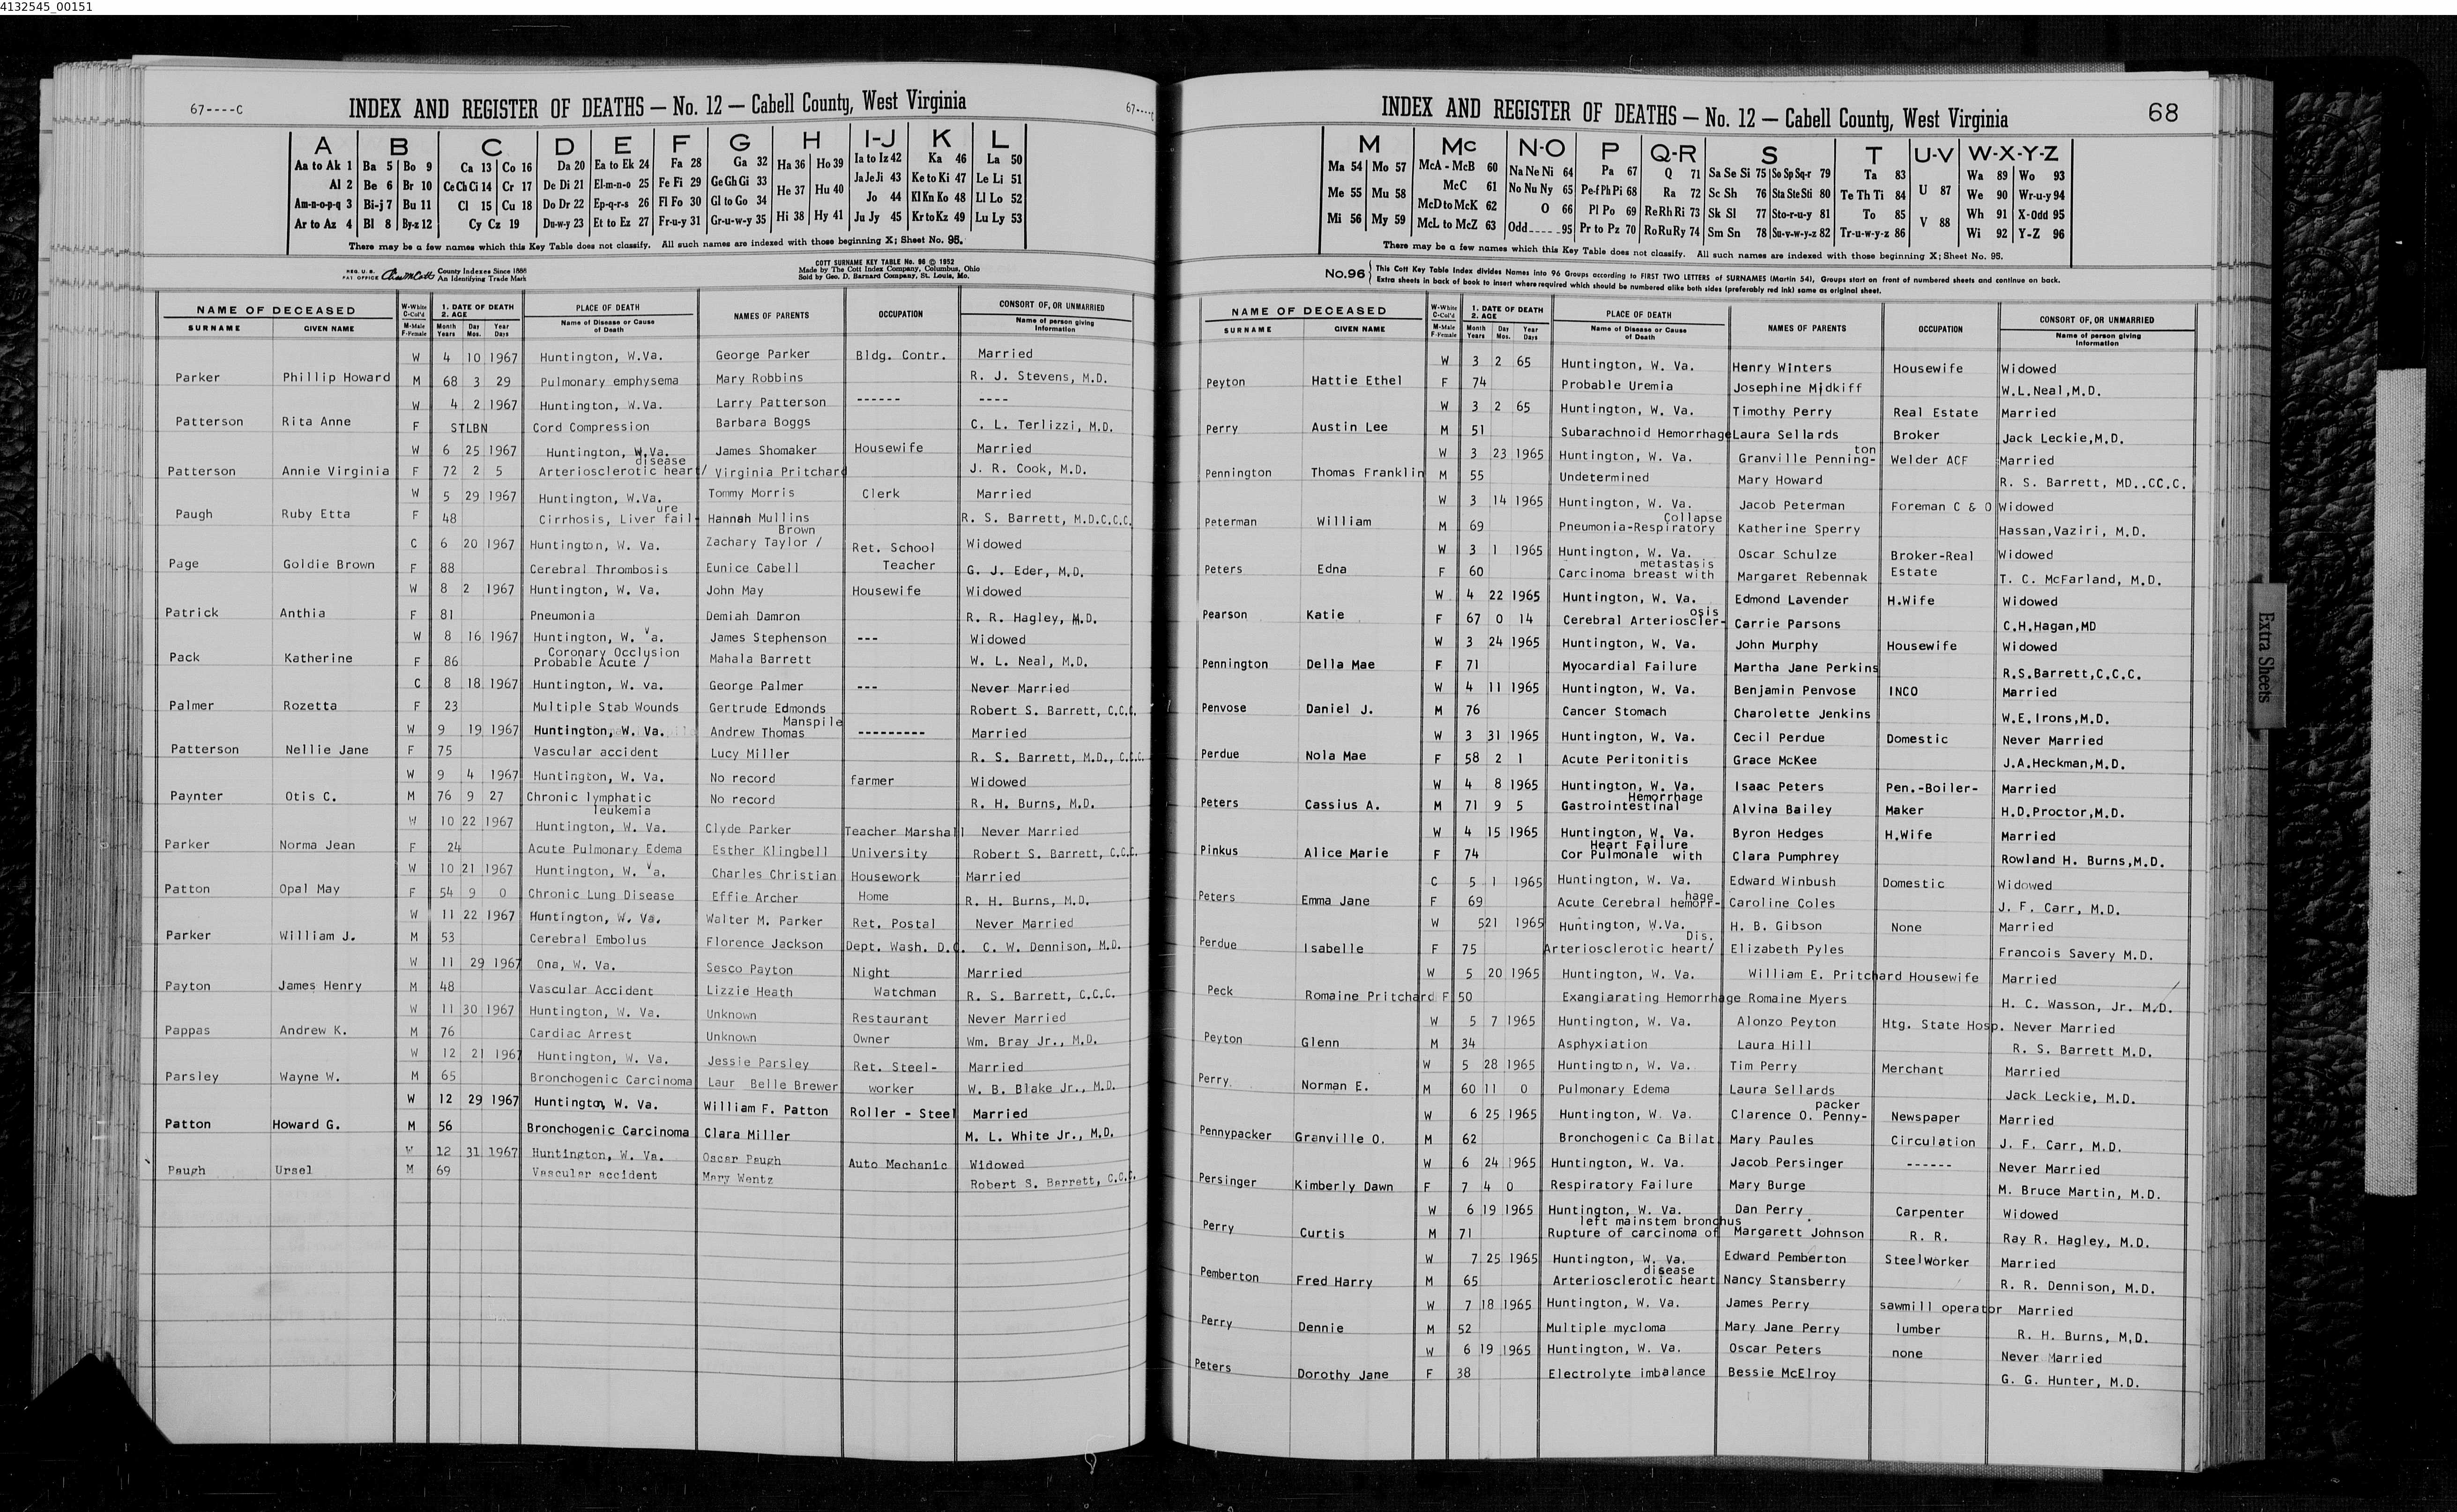 4132545_00151
67----C
INDEX AND REGISTER OF DEATHS — No. 12 — Cabell County, West Virginia
67----
A B C D E F G H I-J K L
Aa to Ak 1 Ba 5 Bo 9 Ca 13 Co 16 Da 20 Ea to Ek 24 Fa 28 Ga 32 Ha 36 Ho 39 Ia to Iz 42 Ka 46 La 50
Al 2 Be 6 Br 10 Ce Ch Ci 14 Cr 17 De Di 21 El-m-n-o 25 Fe Fi 29 Ge Gh Gi 33 He 37 Hu 40 Ja Je Ji 43 Ke to Ki 47 Le Li 51
Am-n-o-p-q 3 Bi-j 7 Bu 11 Cl 15 Cu 18 Do Dr 22 Ep-q-r-s 26 Fl Fo 30 Gl to Go 34 Jo 44 Kl Kn Ko 48 Ll Lo 52
Ar to Az 4 Bl 8 By-z 12 Cy Cz 19 Du-w-y 23 Et to Ez 27 Fr-u-y 31 Gr-u-w-y 35 Hi 38 Hy 41 Ju Jy 45 Kr to Kz 49 Lu Ly 53
There may be a few names which this Key Table does not classify. All such names are indexed with those beginning X; Sheet No. 95.
REG. U. S. PAT OFFICE County Indexes Since 1888 An Identifying Trade Mark
COTT SURNAME KEY TABLE No. 96 © 1952
Made by The Cott Index Company, Columbus, Ohio
Sold by Geo. D. Barnard Company, St. Louis, Mo.
NAME OF DECEASED W-White C-Col'd 1. DATE OF DEATH 2. AGE PLACE OF DEATH NAMES OF PARENTS OCCUPATION CONSORT OF, OR UNMARRIED
SURNAME GIVEN NAME M-Male F-Female Month Years Day Mos. Year Days Name of Disease or Cause of Death Name of person giving Information
W 4 10 1967 Huntington, W.Va. George Parker Bldg. Contr. Married
Parker Phillip Howard M 68 3 29 Pulmonary emphysema Mary Robbins R. J. Stevens, M.D.
W 4 2 1967 Huntington, W.Va. Larry Patterson ------ ----
Patterson Rita Anne F STLBN Cord Compression Barbara Boggs C. L. Terlizzi, M.D.
W 6 25 1967 Huntington, W.Va. James Shomaker Housewife Married
disease
Patterson Annie Virginia F 72 2 5 Arteriosclerotic heart/ Virginia Pritchard J. R. Cook, M.D.
W 5 29 1967 Huntington, W.Va. Tommy Morris Clerk Married
ure
Paugh Ruby Etta F 48 Cirrhosis, Liver fail- Hannah Mullins R. S. Barrett, M.D.C.C.C.
Brown
C 6 20 1967 Huntington, W. Va. Zachary Taylor / Ret. School Widowed
Page Goldie Brown F 88 Cerebral Thrombosis Eunice Cabell Teacher G. J. Eder, M.D.
W 8 2 1967 Huntington, W. Va. John May Housewife Widowed
Patrick Anthia F 81 Pneumonia Demiah Damron R. R. Hagley, M.D.
W 8 16 1967 Huntington, W. Va. James Stephenson --- Widowed
Coronary Occlusion
Pack Katherine F 86 Probable Acute / Mahala Barrett W. L. Neal, M.D.
C 8 18 1967 Huntington, W. va. George Palmer --- Never Married
Palmer Rozetta F 23 Multiple Stab Wounds Gertrude Edmonds Robert S. Barrett, C.C.C.
Manspile
W 9 19 1967 Huntington, W. Va. Andrew Thomas --------- Married
Patterson Nellie Jane F 75 Vascular accident Lucy Miller R. S. Barrett, M.D., C.C.C.
W 9 4 1967 Huntington, W. Va. No record farmer Widowed
Paynter Otis C. M 76 9 27 Chronic lymphatic No record R. H. Burns, M.D.
leukemia
W 10 22 1967 Huntington, W. Va. Clyde Parker Teacher Marshall Never Married
Parker Norma Jean F 24 Acute Pulmonary Edema Esther Klingbell University Robert S. Barrett, C.C.C.
W 10 21 1967 Huntington, W. Va. Charles Christian Housework Married
Patton Opal May F 54 9 0 Chronic Lung Disease Effie Archer Home R. H. Burns, M.D.
W 11 22 1967 Huntington, W. Va. Walter M. Parker Ret. Postal Never Married
Parker William J. M 53 Cerebral Embolus Florence Jackson Dept. Wash. D.C. C. W. Dennison, M.D.
W 11 29 1967 Ona, W. Va. Sesco Payton Night Married
Payton James Henry M 48 Vascular Accident Lizzie Heath Watchman R. S. Barrett, C.C.C.
W 11 30 1967 Huntington, W. Va. Unknown Restaurant Never Married
Pappas Andrew K. M 76 Cardiac Arrest Unknown Owner Wm. Bray Jr., M.D.
W 12 21 1967 Huntington, W. Va. Jessie Parsley Ret. Steel- Married
Parsley Wayne W. M 65 Bronchogenic Carcinoma Laur Belle Brewer worker W. B. Blake Jr., M.D.
W 12 29 1967 Huntington, W. Va. William F. Patton Roller - Steel Married
Patton Howard G. M 56 Bronchogenic Carcinoma Clara Miller M. L. White Jr., M.D.
W 12 31 1967 Huntington, W. Va. Oscar Paugh Auto Mechanic Widowed
Paugh Ursel M 69 Vascular accident Mary Wentz Robert S. Barrett, C.C.C.
INDEX AND REGISTER OF DEATHS — No. 12 — Cabell County, West Virginia
68
M Mc N-O P Q-R S T U-V W-X-Y-Z
Ma 54 Mo 57 McA - McB 60 Na Ne Ni 64 Pa 67 Q 71 Sa Se Si 75 So Sp Sq-r 79 Ta 83 Wa 89 Wo 93
Me 55 Mu 58 McC 61 No Nu Ny 65 Pe-f Ph Pi 68 Ra 72 Sc Sh 76 Sta Ste Sti 80 Te Th Ti 84 U 87 We 90 Wr-u-y 94
McD to McK 62 O 66 Pl Po 69 Re Rh Ri 73 Sk Sl 77 Sto-r-u-y 81 To 85 Wh 91 X-Odd 95
Mi 56 My 59 McL to McZ 63 Odd-----95 Pr to Pz 70 Ro Ru Ry 74 Sm Sn 78 Su-v-w-y-z 82 Tr-u-w-y-z 86 V 88 Wi 92 Y-Z 96
There may be a few names which this Key Table does not classify. All such names are indexed with those beginning X; Sheet No. 95.
No.96 This Cott Key Table Index divides Names into 96 Groups according to FIRST TWO LETTERS of SURNAMES (Martin 54), Groups start on front of numbered sheets and continue on back.
Extra sheets in back of book to insert where required which should be numbered alike both sides (preferably red ink) same as original sheet.
NAME OF DECEASED W-White C-Col'd 1. DATE OF DEATH 2. AGE PLACE OF DEATH NAMES OF PARENTS OCCUPATION CONSORT OF, OR UNMARRIED
SURNAME GIVEN NAME M-Male F-Female Month Years Day Mos. Year Days Name of Disease or Cause of Death Name of person giving Information
W 3 2 65 Huntington, W. Va. Henry Winters Housewife Widowed
Peyton Hattie Ethel F 74 Probable Uremia Josephine Midkiff W.L.Neal,M.D.
W 3 2 65 Huntington, W. Va. Timothy Perry Real Estate Married
Perry Austin Lee M 51 Subarachnoid Hemorrhage Laura Sellards Broker Jack Leckie,M.D.
ton
W 3 23 1965 Huntington, W. Va. Granville Penning- Welder ACF Married
Pennington Thomas Franklin M 55 Undetermined Mary Howard R. S. Barrett, MD..CC.C.
W 3 14 1965 Huntington, W. Va. Jacob Peterman Foreman C & O Widowed
Collapse
Peterman William M 69 Pneumonia-Respiratory Katherine Sperry Hassan,Vaziri, M.D.
W 3 1 1965 Huntington, W. Va. Oscar Schulze Broker-Real Widowed
metastasis
Peters Edna F 60 Carcinoma breast with Margaret Rebennak Estate T. C. McFarland, M.D.
W 4 22 1965 Huntington, W. Va. Edmond Lavender H.Wife Widowed
osis
Pearson Katie F 67 0 14 Cerebral Arterioscler- Carrie Parsons C.H.Hagan,MD
W 3 24 1965 Huntington, W. Va. John Murphy Housewife Widowed
Pennington Della Mae F 71 Myocardial Failure Martha Jane Perkins R.S.Barrett,C.C.C.
W 4 11 1965 Huntington, W. Va. Benjamin Penvose INCO Married
Penvose Daniel J. M 76 Cancer Stomach Charolette Jenkins W.E.Irons,M.D.
W 3 31 1965 Huntington, W. Va. Cecil Perdue Domestic Never Married
Perdue Nola Mae F 58 2 1 Acute Peritonitis Grace McKee J.A.Heckman,M.D.
W 4 8 1965 Huntington, W. Va. Isaac Peters Pen.-Boiler- Married
Hemorrhage
Peters Cassius A. M 71 9 5 Gastrointestinal Alvina Bailey Maker H.D.Proctor,M.D.
W 4 15 1965 Huntington, W. Va. Byron Hedges H.Wife Married
Heart Failure
Pinkus Alice Marie F 74 Cor Pulmonale with Clara Pumphrey Rowland H. Burns,M.D.
C 5 1 1965 Huntington, W. Va. Edward Winbush Domestic Widowed
hage
Peters Emma Jane F 69 Acute Cerebral hemorr- Caroline Coles J. F. Carr, M.D.
W 521 1965 Huntington, W.Va. H. B. Gibson None Married
Dis.
Perdue Isabelle F 75 Arteriosclerotic heart/ Elizabeth Pyles Francois Savery M.D.
W 5 20 1965 Huntington, W. Va. William E. Pritchard Housewife Married
Peck Romaine Pritchard F 50 Exangiarating Hemorrhage Romaine Myers H. C. Wasson, Jr. M.D.
W 5 7 1965 Huntington, W. Va. Alonzo Peyton Htg. State Hosp. Never Married
Peyton Glenn M 34 Asphyxiation Laura Hill R. S. Barrett M.D.
W 5 28 1965 Huntington, W. Va. Tim Perry Merchant Married
Perry Norman E. M 60 11 0 Pulmonary Edema Laura Sellards Jack Leckie, M.D.
packer
W 6 25 1965 Huntington, W. Va. Clarence O. Penny- Newspaper Married
Pennypacker Granville O. M 62 Bronchogenic Ca Bilat Mary Paules Circulation J. F. Carr, M.D.
W 6 24 1965 Huntington, W. Va. Jacob Persinger ------ Never Married
Persinger Kimberly Dawn F 7 4 0 Respiratory Failure Mary Burge M. Bruce Martin, M.D.
W 6 19 1965 Huntington, W. Va. Dan Perry Carpenter Widowed
left mainstem bronchus
Perry Curtis M 71 Rupture of carcinoma of Margarett Johnson R. R. Ray R. Hagley, M.D.
W 7 25 1965 Huntington, W. Va. Edward Pemberton Steelworker Married
disease
Pemberton Fred Harry M 65 Arteriosclerotic heart Nancy Stansberry R. R. Dennison, M.D.
W 7 18 1965 Huntington, W. Va. James Perry sawmill operator Married
Perry Dennie M 52 Multiple mycloma Mary Jane Perry lumber R. H. Burns, M.D.
W 6 19 1965 Huntington, W. Va. Oscar Peters none Never Married
Peters Dorothy Jane F 38 Electrolyte imbalance Bessie McElroy G. G. Hunter, M.D.
Extra Sheets